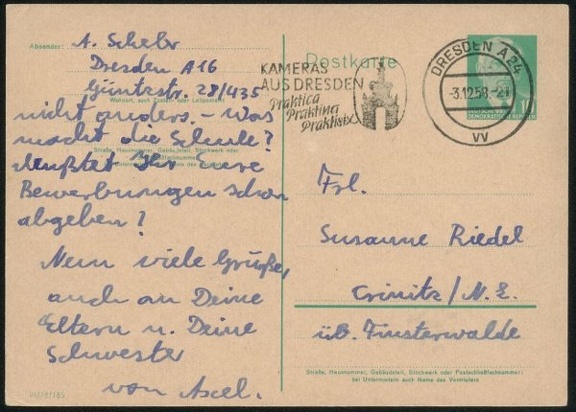 Postkarte
Absender:
A. Schebr
Dresden A16
Güntzstr. 28/435
Wohnort, auch Zustell- oder Leitpostamt
nicht anders. – Was
macht die Schule?
Straße, Hausnummer, Gebäudeteil, Stockwerk oder
Mußtet Ihr Eure
Bewerbungen schon
abgeben?
Nun viele Grüße,
auch an Deine
Eltern u. Deine
Schwester
von Axel.
KAMERAS
AUS DRESDEN
Praktica
Praktina
Praktisix
DRESDEN A24
-3.12.58.-21
VV
10
DEUTSCHE
DEMOKRATISCHE REPUBLIK
Frl.
Susanne Riedel
Crinitz / N. L.
üb. Finsterwalde
Straße, Hausnummer, Gebäudeteil, Stockwerk oder Postschließfachnummer;
bei Untermietern auch Name des Vermieters